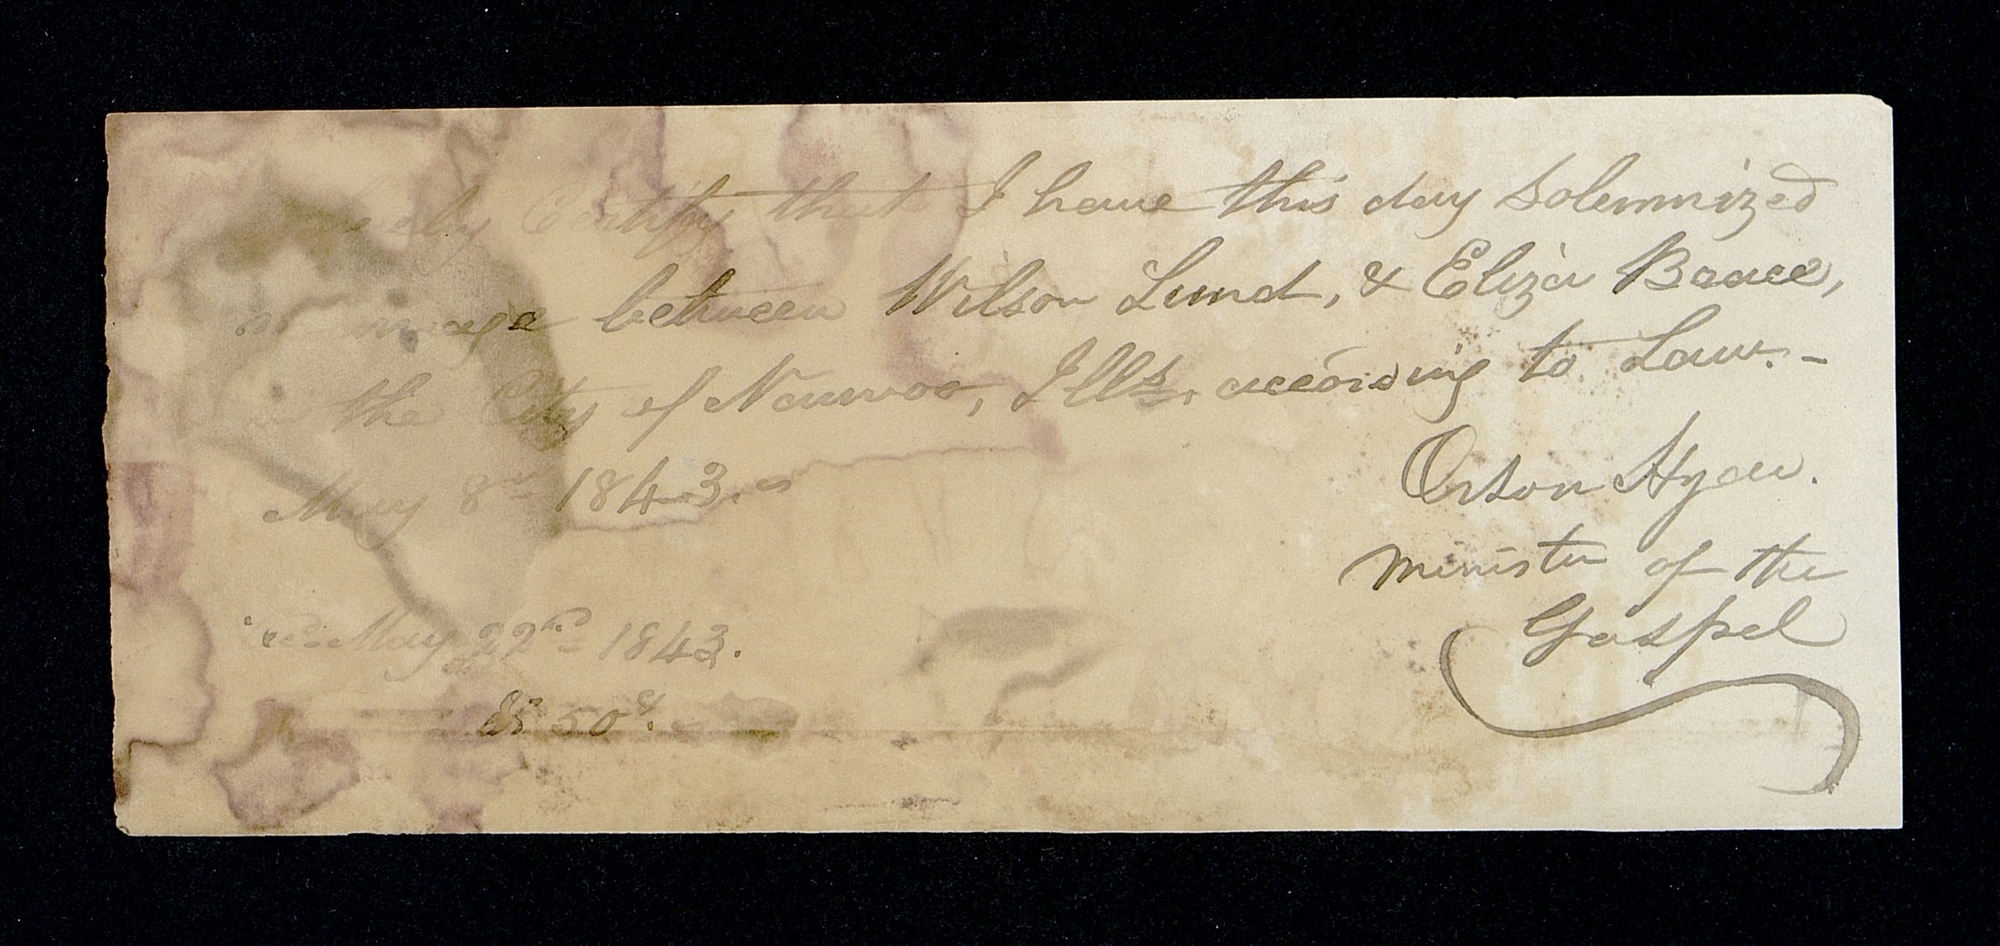 Certify that I have this day Solemnized
between Wilson Lund, & Eliza Brace,
the City of Nauvoo, Ills, according to Law. –
May 8th 1843.
Orson Hyde.
minister of the
Gospel
May 22nd 1843.
50c.